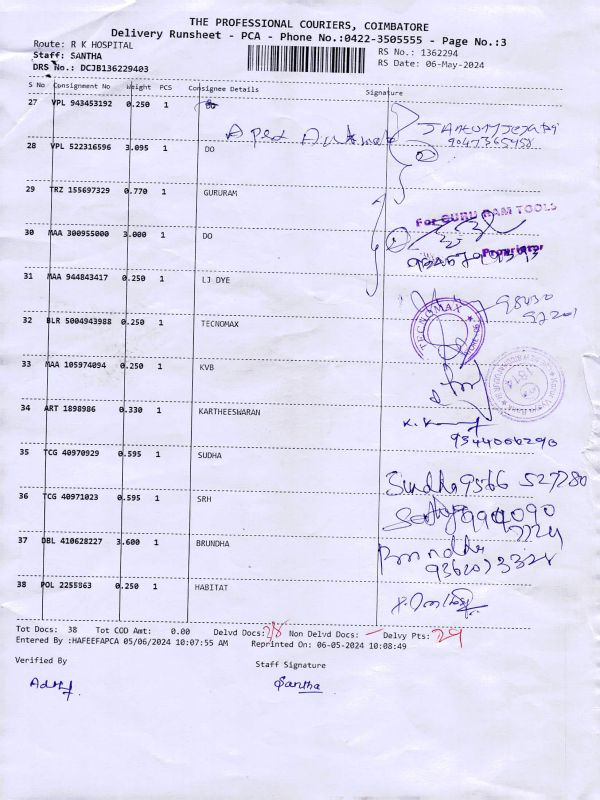 THE PROFESSIONAL COURIERS, COIMBATORE
Delivery Runsheet - PCA - Phone No.:0422-3505555 - Page No.:3
Route: R K HOSPITAL
RS No.: 1362294
Staff: SANTHA
RS Date: 06-May-2024
DRS No.: DCJB136229403
S No Consignment No Weight PCS Consignee Details Signature
27 VPL 943453192 0.250 1
9047365458
28 VPL 522316596 3.095 1 DO
29 TRZ 155697329 0.770 1 GURURAM
For GURU RAM TOOLS
30 MAA 300955000 3.000 1 DO
Proprietor
31 MAA 944843417 0.250 1 LJ DYE
98430
97201
32 BLR 5004943988 0.250 1 TECNOMAX
TECNOMAX
33 MAA 105974094 0.250 1 KVB
34 ART 1898986 0.330 1 KARTHEESWARAN
9344006290
35 TCG 40970929 0.595 1 SUDHA
Sundha 9566 527280
36 TCG 40971023 0.595 1 SRH
37 DBL 410628227 3.600 1 BRUNDHA
Brundha
38 POL 2255863 0.250 1 HABITAT
Tot Docs: 38 Tot COD Amt: 0.00 Delvd Docs: 38 Non Delvd Docs: — Delvy Pts: 29
Entered By :HAFEEFAPCA 05/06/2024 10:07:55 AM Reprinted On: 06-05-2024 10:08:49
Verified By
Staff Signature
Santha